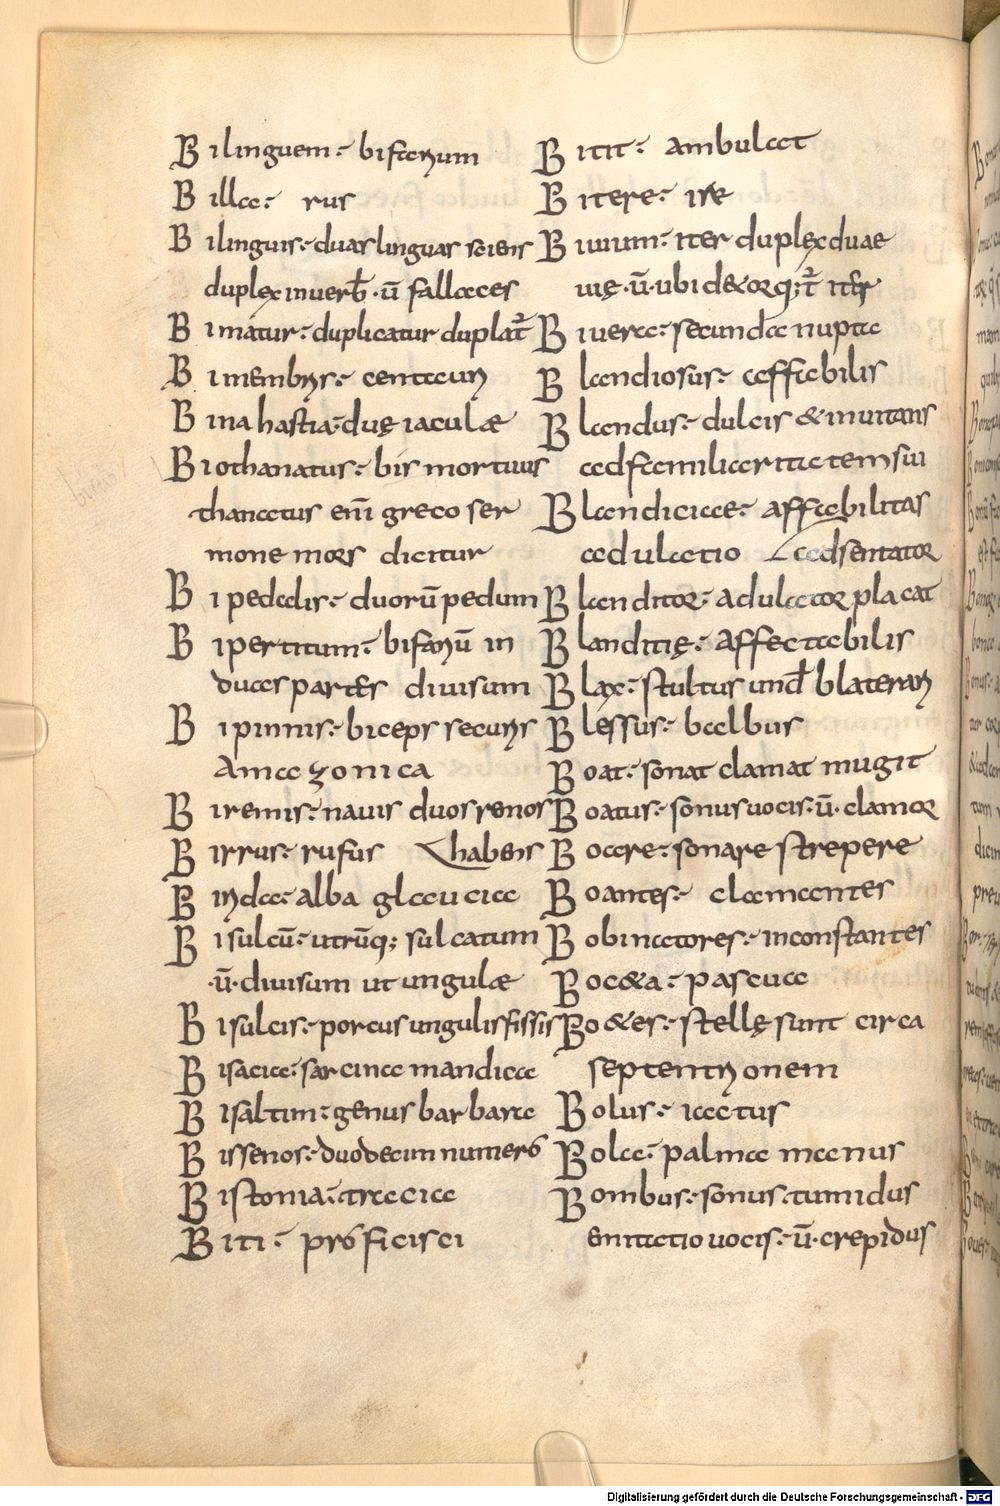 Bilinguem: bifarium
Billa: rus
Bilinguis: duas linguas sciens
duplex in uerƀ · ū fallaces
Bimatur: duplicatur duplat̄
Bimembris: centaeuri
Bina hastia: duę iaculæ
Biothanatus: bis mortuus
thanatus eni͞ greco ser
mone mors dicitur
Bipedalis: duorū pedum
Bipertitum: bifariū in
duas partes diuisum
Bipinnis: biceps securis
amazonica
Biremis: nauis duos remos
Birrus: rufus habens
Birida: alba glaucia
Bisulcū: utrūq; sulcatum
·ū· diuisum ut ungulæ
Bisulcis: porcus ungulis fissis
Bisacia: sarcina mandica
Bisaltim: genus barbara
Bissenos: duodecim numero
Bistonia: tracia
Biti: proficisci
Bitit: ambulat
Bitere: ire
Biuium: iter duplex duae
uię ·ū· ubi de&orq; t̄ iter
Biuera: secunda nupta
Blandiosus: affabilis
Blandus: dulcis & inuitans
ad familiaritatem sui
Blandicia: affabilitas
adulatio
Blanditor: adulator placat adsentator
Blanditię: affectabilis
Blax: stultus und̄ blateran
Blessus: balbus
Boat: sonat clamat mugit
Boatus: sonus uocis ·ū· clamor
Boare: sonare strepere
Boantes: clamantes
Bobinatores: inconstantes
Boc&a: pascua
Bo&es: stellę sunt circa
septentrionem
Bolus: iactus
Bola: palma manus
Bombus: sonus tumidus
emitatio uocis ·ū· crepidus
Digitalisierung gefördert durch die Deutsche Forschungsgemeinschaft - DFG